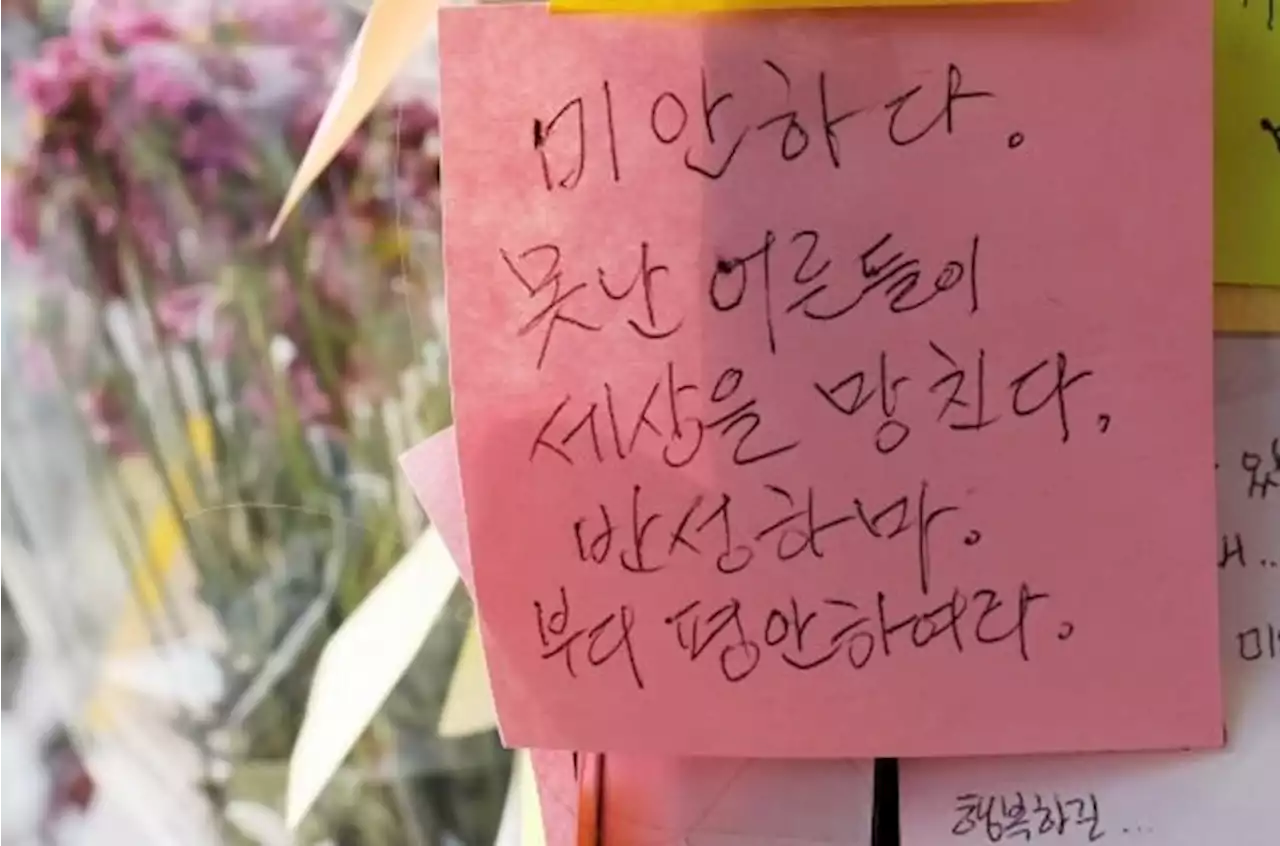 미안하다.
못난 어른들이
세상을 망친다.
반성하마.
부디 평안하여라.
행복하길...